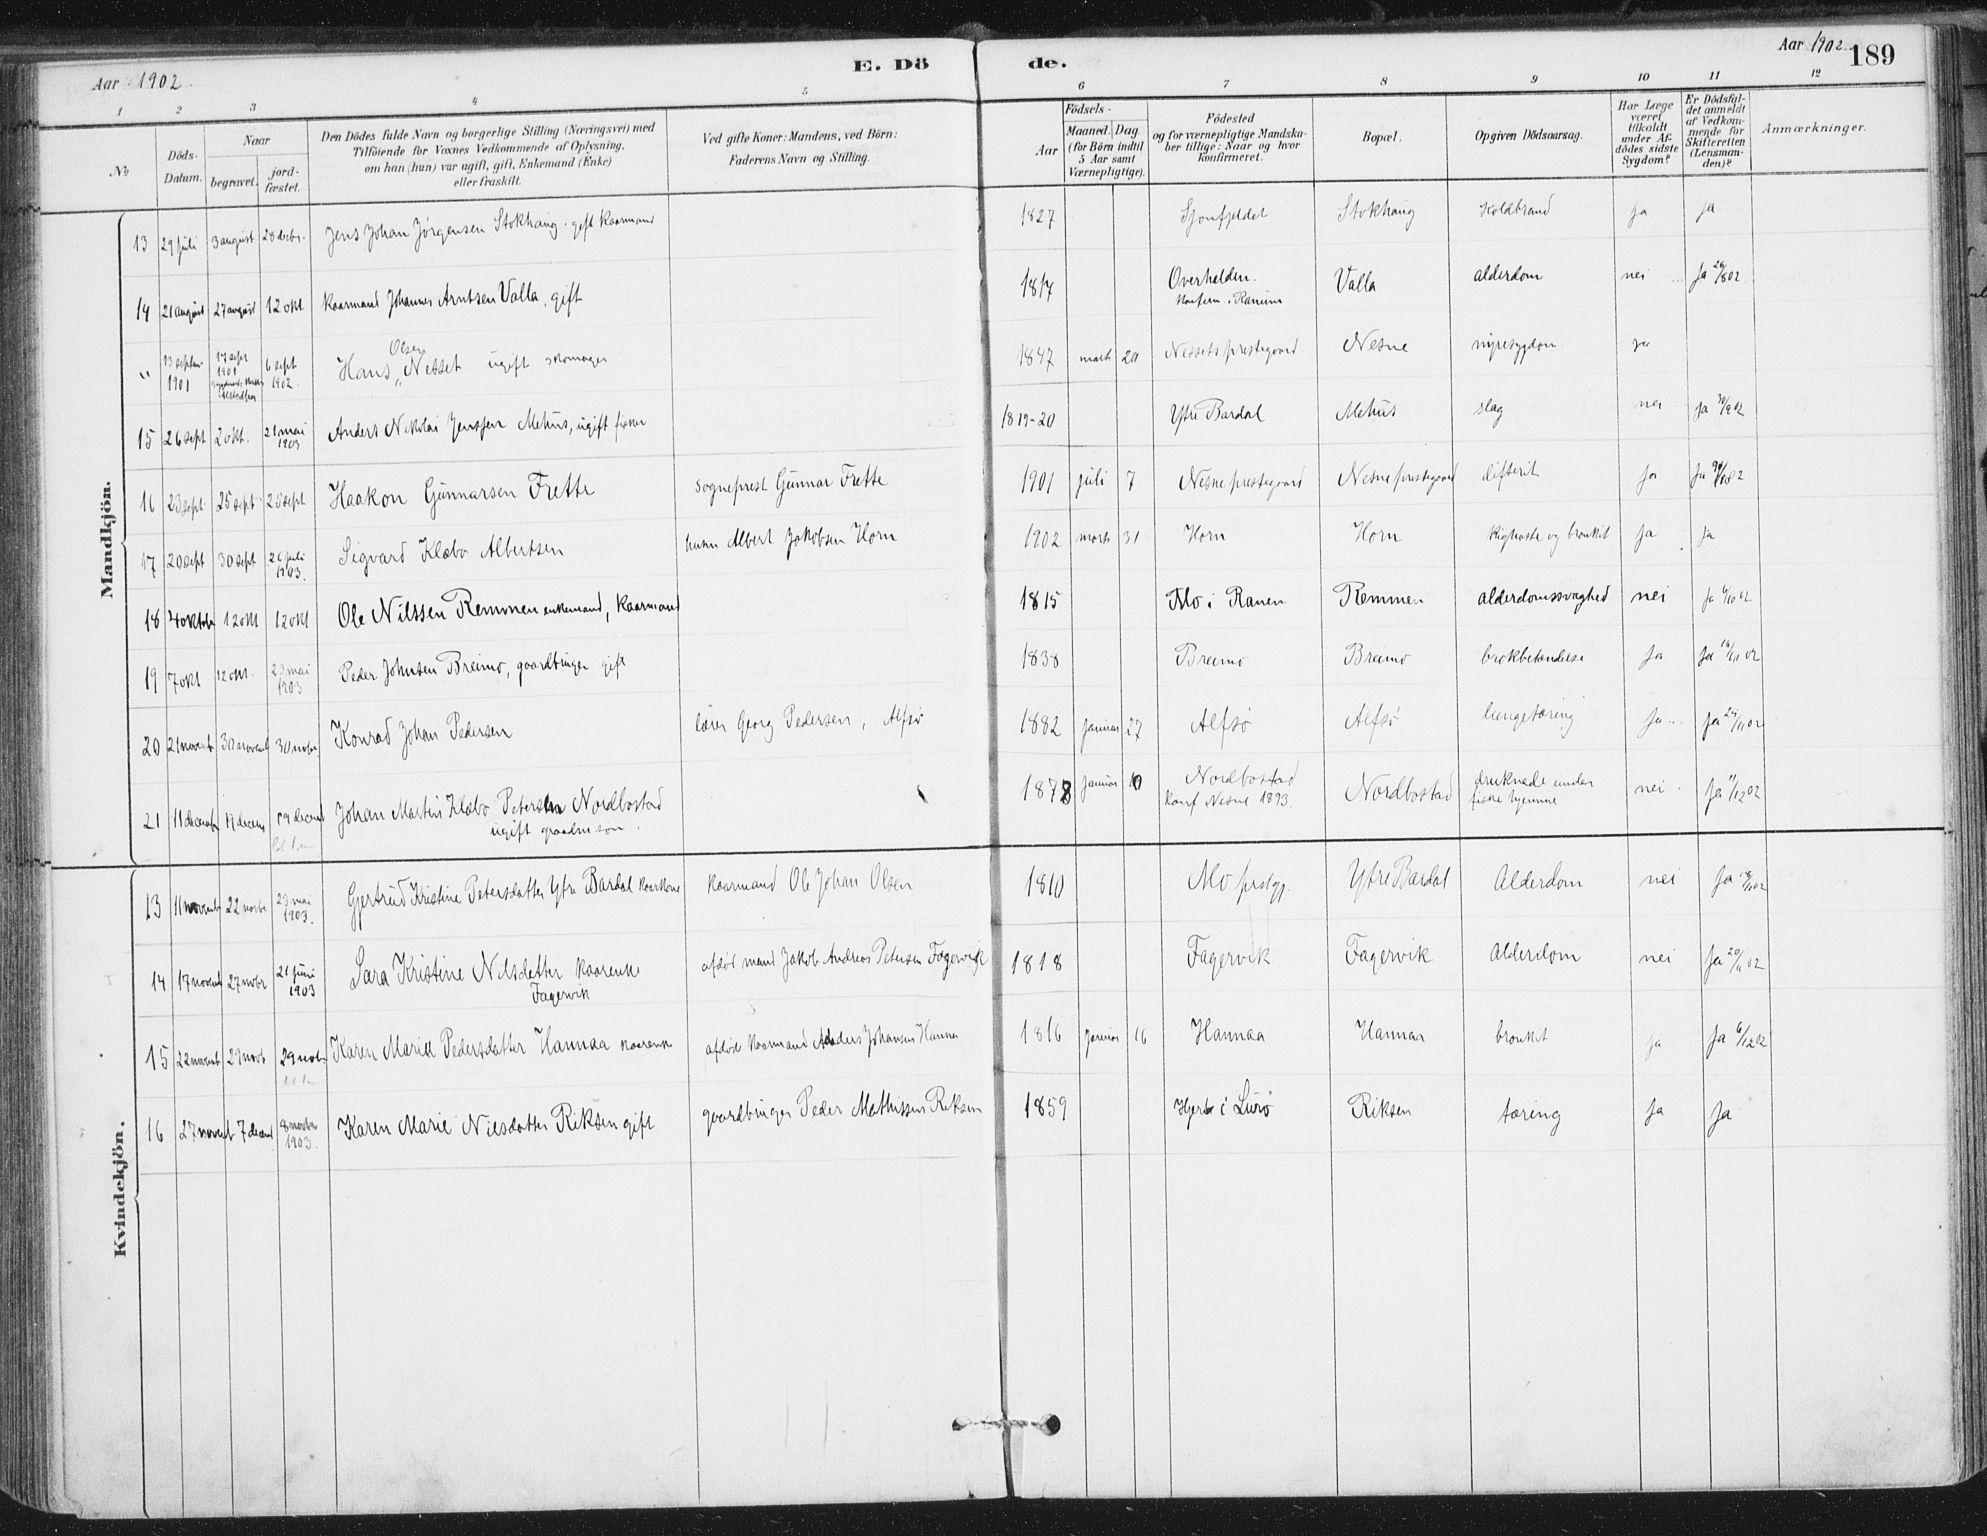 Aar 1902
E. Dö
de.
Aar 1902
189
1 2 3 4 5 6 7 8 9 10 11 12
No
Döds-Datum.
Naar
begravet.
jord-fæstet.
Den Dödes fulde Navn og borgerlige Stilling (Næringsvei) med
Tilföiende for Voxnes Vedkommende af Oplysning,
om han (hun) var ugift, gift, Enkemand (Enke)
eller fraskilt.
Ved gifte Koner: Mandens, ved Börn:
Faderens Navn og Stilling.
Födsels-
Aar
Maaned. Dag.
(for Börn indtil
5 Aar samt
Værnepligtige).
Födested
og for værnepligtige Mandska-
ber tillige: Naar og hvor
konfirmeret.
Bopæl.
Opgiven Dödsaarsag.
Har Læge
været
tilkaldt
under Af-
dödes sidste
Sygdom?
Er Dödsfal-
det anmeldt
af Vedkom-
mende for
Skifteretten
(Lensman-
den)?
Anmærkninger.
Mandkjön.
13 29 juli 3 august 28 decbr. Jens Johan Jörgensen Stokhaug. gift kaarmand 1827 Sjonfjeldet Stokhaug Koldbrand ja ja
14 21 august 27 august 12 okt kaarmand Johannes Arntsen Valla, gift 1817 Overhalden. Konfirm. i Ranum Valla alderdom nei ja 26/8 02
" 13 septbr 1901 17 sept 1901 6 sept 1902. Hans Olsen Nesset ugift skomager 1847 marts 20 Nessets prestegaard Nesne nyresygdom ja
15 26 sept 2 okt. 21 mai 1903 Anders Nikolai Jenssen Mehus, ugift fisker 1819-20 Ytre Bardal Mehus slag nei ja 30/9 02
16 23 sept 25 sept 25 sept Haakon Gunnarsen Frette sogneprest Gunnar Frette 1901 juli 7 Nesne prestegaard Nesne prestegaard difterit ja ja
17 20 sept 30 sept 26 juli 1903. Sigvard Klæbo Albertsen husm Albert Jakobsen Horn 1902 marts 31 Horn Horn kighoste og bronkit ja ja
18 4 oktob 12 okt 12 okt Ole Nilssen Remmen enkemand, kaarmand 1815 Mo i Ranen Remmen alderdomssvaghed nei ja 6/10 02
19 7 okt 12 okt. 23 mai 1903 Peder Johnsen Breimo, gaardbruger gift 1838 Breimo Breimo brokbetændelse ja ja
20 21 novemb 30 novemb 30 novbr. Konrad Johan Pedersen lærer Georg Pedersen, Alfsö 1882 januar 27 Alfsö Alfsö lungetæring ja ja 24/11 02
21 11 decemb 19 decem 19 decemb Johan Martin Klæbo Petersen Nordbostad
ugift gaardmsøn. 1878 januar 10 Nordbostad
konf Nesne 1893. Nordbostad druknede under
fiske hjemme nei ja
Kvindekjön.
13 11 novemb 22 novbr 23 mai 1903. Gjertrud Kristine Petersdatter Ytre Bardal kaarkone kaarmand Ole Johan Olsen 1810 Mo prstgj. Ytre Bardal Alderdom nei ja
14 17 novemb 27 novbr 21 juni 1903 Sara Kristine Nilsdatter kaarenke
Fagervik afdöd mand Jakob Andreas Petersen Fagervik 1818 Fagervik Fagervik Alderdom nei ja 20/11 02
15 22 novemb 29 novb 29 novb. Karen Marie Pedersdatter Hannaa kaarenke afdöde kaarmand Anders Johansen Hannaa 1816 januar 16 Hannaa Hannaa bronkit ja ja 6/12 02
16 27 novemb 7 decemb. 8 novbr 1903. Karen Marie Nilsdatter Riksen gift gaardbruger Peder Mathissen Riksen 1859 i Lurö Riksen tæring ja ja